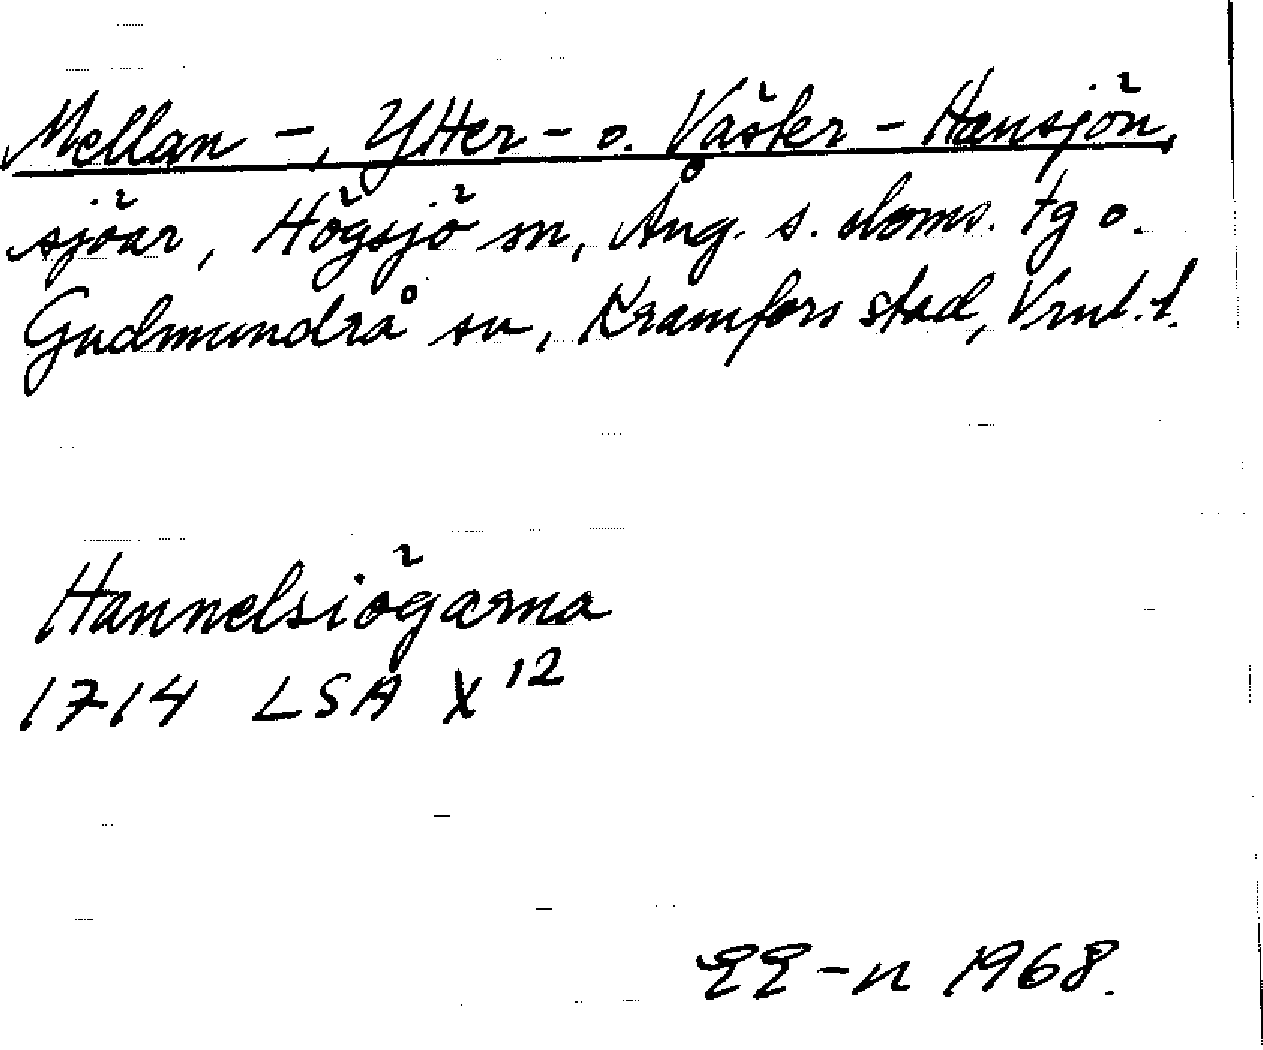 Mellan-, Ytter- o. Väster-Hansjön,
sjöar, Högsjö sn, Ång. s. doms. tg o.
Gudmundrå sn, Kramfors stad, Vrnl. l.
Hannelsiögarna
1714 LSA X 12
EE-n 1968.